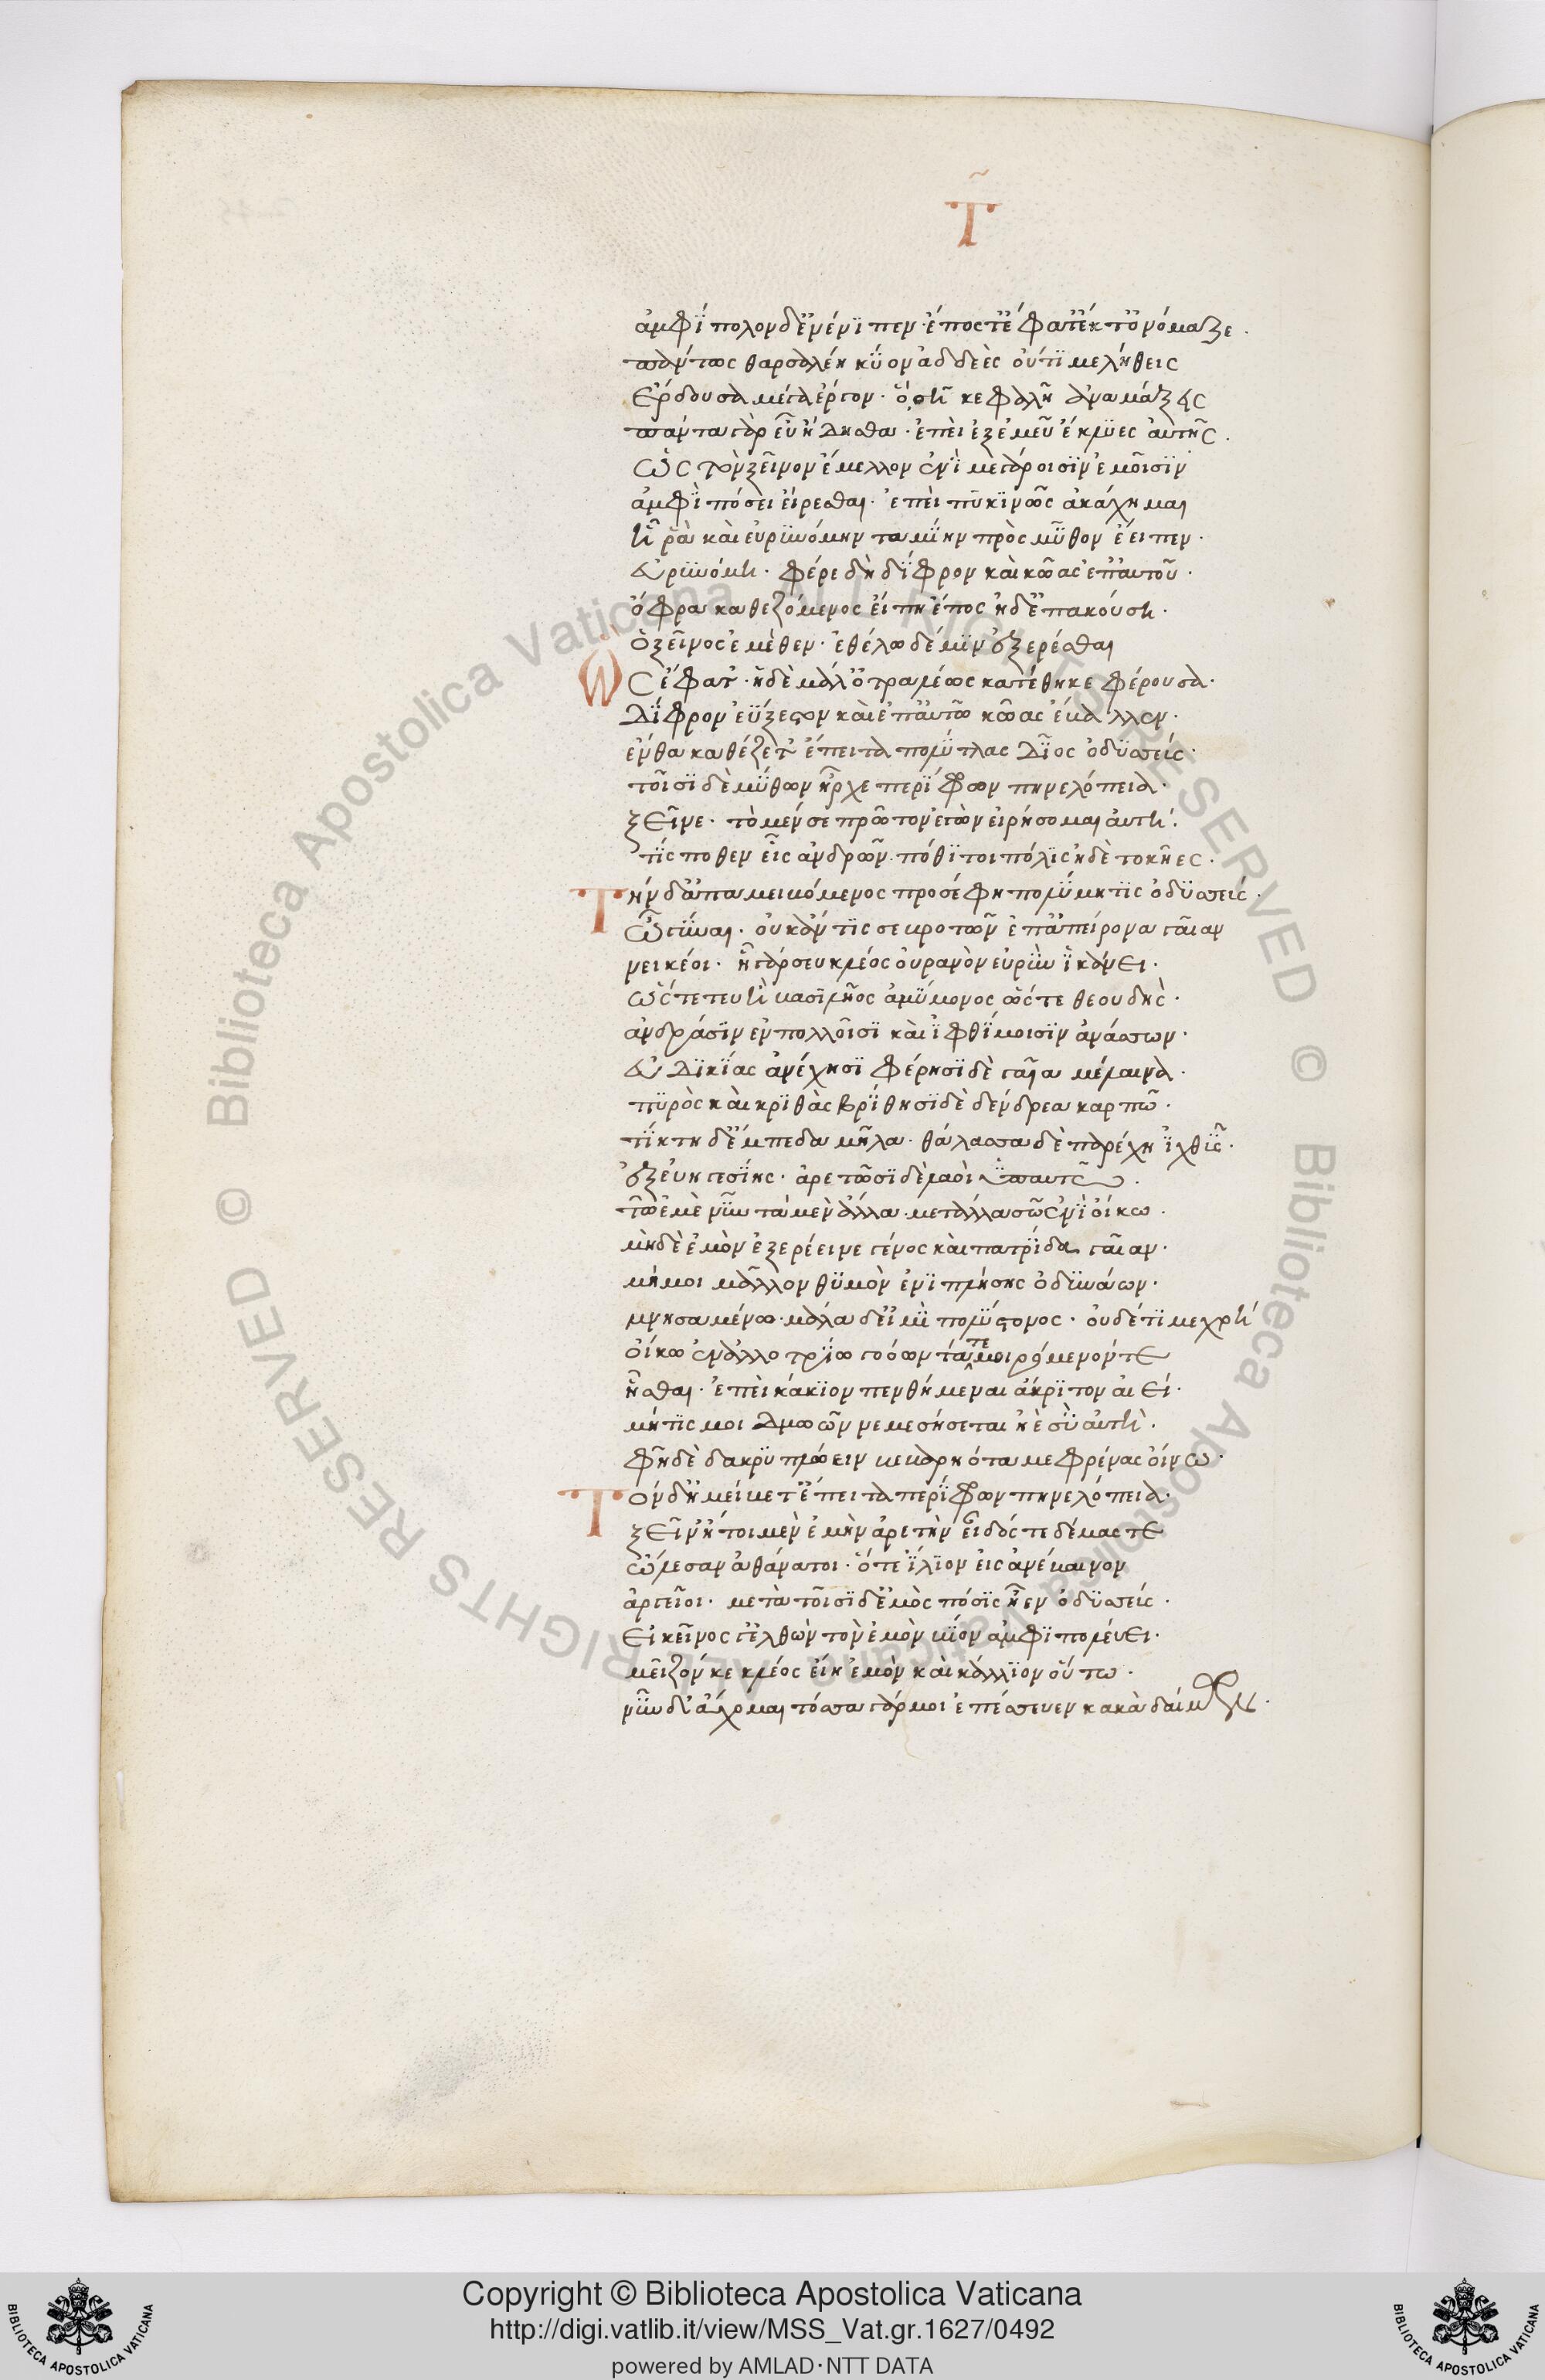 Τ
ἀμφίπολον δ' ἐνένιπεν· ἔπος τ' ἔφατ' ἔκ τ' ὀνόμαζε·
πάντως θαρσαλέη κύον ἀδδεὲς οὔτι με λήθεις
ἔρδουσα μέγα ἔργον· ὃ σῇ κεφαλῇ ἀναμάξεις
πάντα γὰρ εὖ ᾔδησθα· ἐπεὶ ἐξ ἐμεῦ ἔκλυες αὐτῆς·
ὡς τὸν ξεῖνον ἔμελλον ἐνὶ μεγάροισιν ἐμοῖσιν
ἀμφὶ πόσει εἴρεσθαι· ἐπεὶ πυκινῶς ἀκάχημαι
ἦ ῥα καὶ εὐρυνόμην ταμίην πρὸς μῦθον ἔειπεν·
εὐρυνόμη· φέρε δὴ δίφρον καὶ κῶας ἐπ' αὐτοῦ·
ὄφρα καθεζόμενος εἴπη ἔπος ἠδ' ἐπακούση·
ὁ ξεῖνος ἐμέθεν· ἐθέλω δέ μιν ἐξερέεσθαι
Ὣς ἔφατ'· ἡ δὲ μάλ' ὀτραλέως κατέθηκε φέρουσα·
δίφρον ἐΰξεστον καὶ ἐπ' αὐτῶ κῶας ἔβαλλεν·
ἔνθα καθέζετ' ἔπειτα πολύτλας δῖος ὀδυσσεύς·
τοῖσι δὲ μύθων ἦρχε περίφρων πηνελόπεια·
ξεῖνε· τὸ μέν σε πρῶτον ἐγὼν εἰρήσομαι αὐτή·
τίς πόθεν εἶς ἀνδρῶν· πόθι τοι πόλις ἠδὲ τοκῆες·
Τὴν δ' ἀπαμειβόμενος προσέφη πολύμητις ὀδυσσεύς·
ὦ γύναι· οὐκ ἄν τις σε βροτῶν ἐπ' ἀπείρονα γαῖαν
νεικέοι· ἦ γάρ σευ κλέος οὐρανὸν εὐρὺν ἱκάνει·
ὥς τέ τευ ἢ βασιλῆος ἀμύμονος ὥς τε θεουδής·
ἀνδράσιν ἐν πολλοῖσι καὶ ἰφθίμοισιν ἀνάσσων·
εὐδικίας ἀνέχησι φέρησι δὲ γαῖα μέλαινα·
πυρὸς καὶ κριθὰς βρίθησι δὲ δένδρεα καρπῶ·
τίκτη δ' ἔμπεδα μῆλα· θάλασσα δὲ παρέχη ἰχθῦς·
ἐξ εὐηγεσίης· ἀρετῶσι δὲ λαοὶ ὑπ' αὐτοῦ·
τῶ ἐμὲ νῦν τὰ μὲν ἄλλα μετάλλα σῶ ἐνὶ οἴκω·
μηδὲ ἐμὸν ἐξερέεινε γένος καὶ πατρίδα γαῖαν·
μή μοι μᾶλλον θυμὸν ἐνιπλήσης ὀδυνάων·
μνησαμένω· μάλα δ' εἰμὶ πολύστονος· οὐδέ τί με χρὴ
οἴκω ἐν ἀλλοτρίω γοόωντά τε μυρόμενόν τε
ἧσθαι· ἐπεὶ κάκιον πενθήμεναι ἄκριτον αἰεί·
μήτις μοι δμωῶν νεμεσήσεται ἠὲ σὺ αὐτὴ·
φῆ δὲ δακρυπλώειν βεβαρηότα με φρένας οἴνω·
Τὸν δ' ἠμείβετ' ἔπειτα περίφρων πηνελόπεια·
ξεῖν' ἤτοι μὲν ἐμὴν ἀρετὴν εἶδός τε δέμας τε
ὤλεσαν ἀθάνατοι· ὅτε ἴλιον εἰς ἀνέβαινον
ἀργεῖοι· μετὰ τοῖσι δ' ἐμὸς πόσις ἦεν ὀδυσσεύς·
εἰ κεῖνος γ' ἐλθὼν τὸν ἐμὸν βίον ἀμφιπολεύει·
μεῖζόν κε κλέος εἴη ἐμὸν καὶ κάλλιον οὕτω·
νῦν δ' ἄχομαι τόσσα γάρ μοι ἐπέσσευεν κακὰ δαίμων·
Copyright © Biblioteca Apostolica Vaticana
http://digi.vatlib.it/view/MSS_Vat.gr.1627/0492
powered by AMLAD·NTT DATA
BIBLIOTECA APOSTOLICA VATICANA
BIBLIOTECA APOSTOLICA VATICANA
© Biblioteca Apostolica Vaticana ALL RIGHTS RESERVED
© Biblioteca Apostolica Vaticana ALL RIGHTS RESERVED